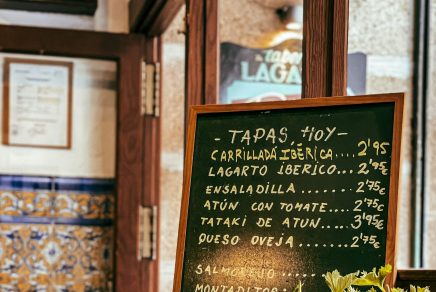 LAGAR
- TAPAS, HOY -
CARRILLADA IBÉRICA.... 2'95
LAGARTO IBERICO... 2'75€
ENSALADILLA ....... 2'75€
ATÚN CON TOMATE.... 2'75€
TATAKI DE ATUN..... 3'95€
QUESO OVEJA ....... 2'75€
SALMOREJO .....
MONTADITOS